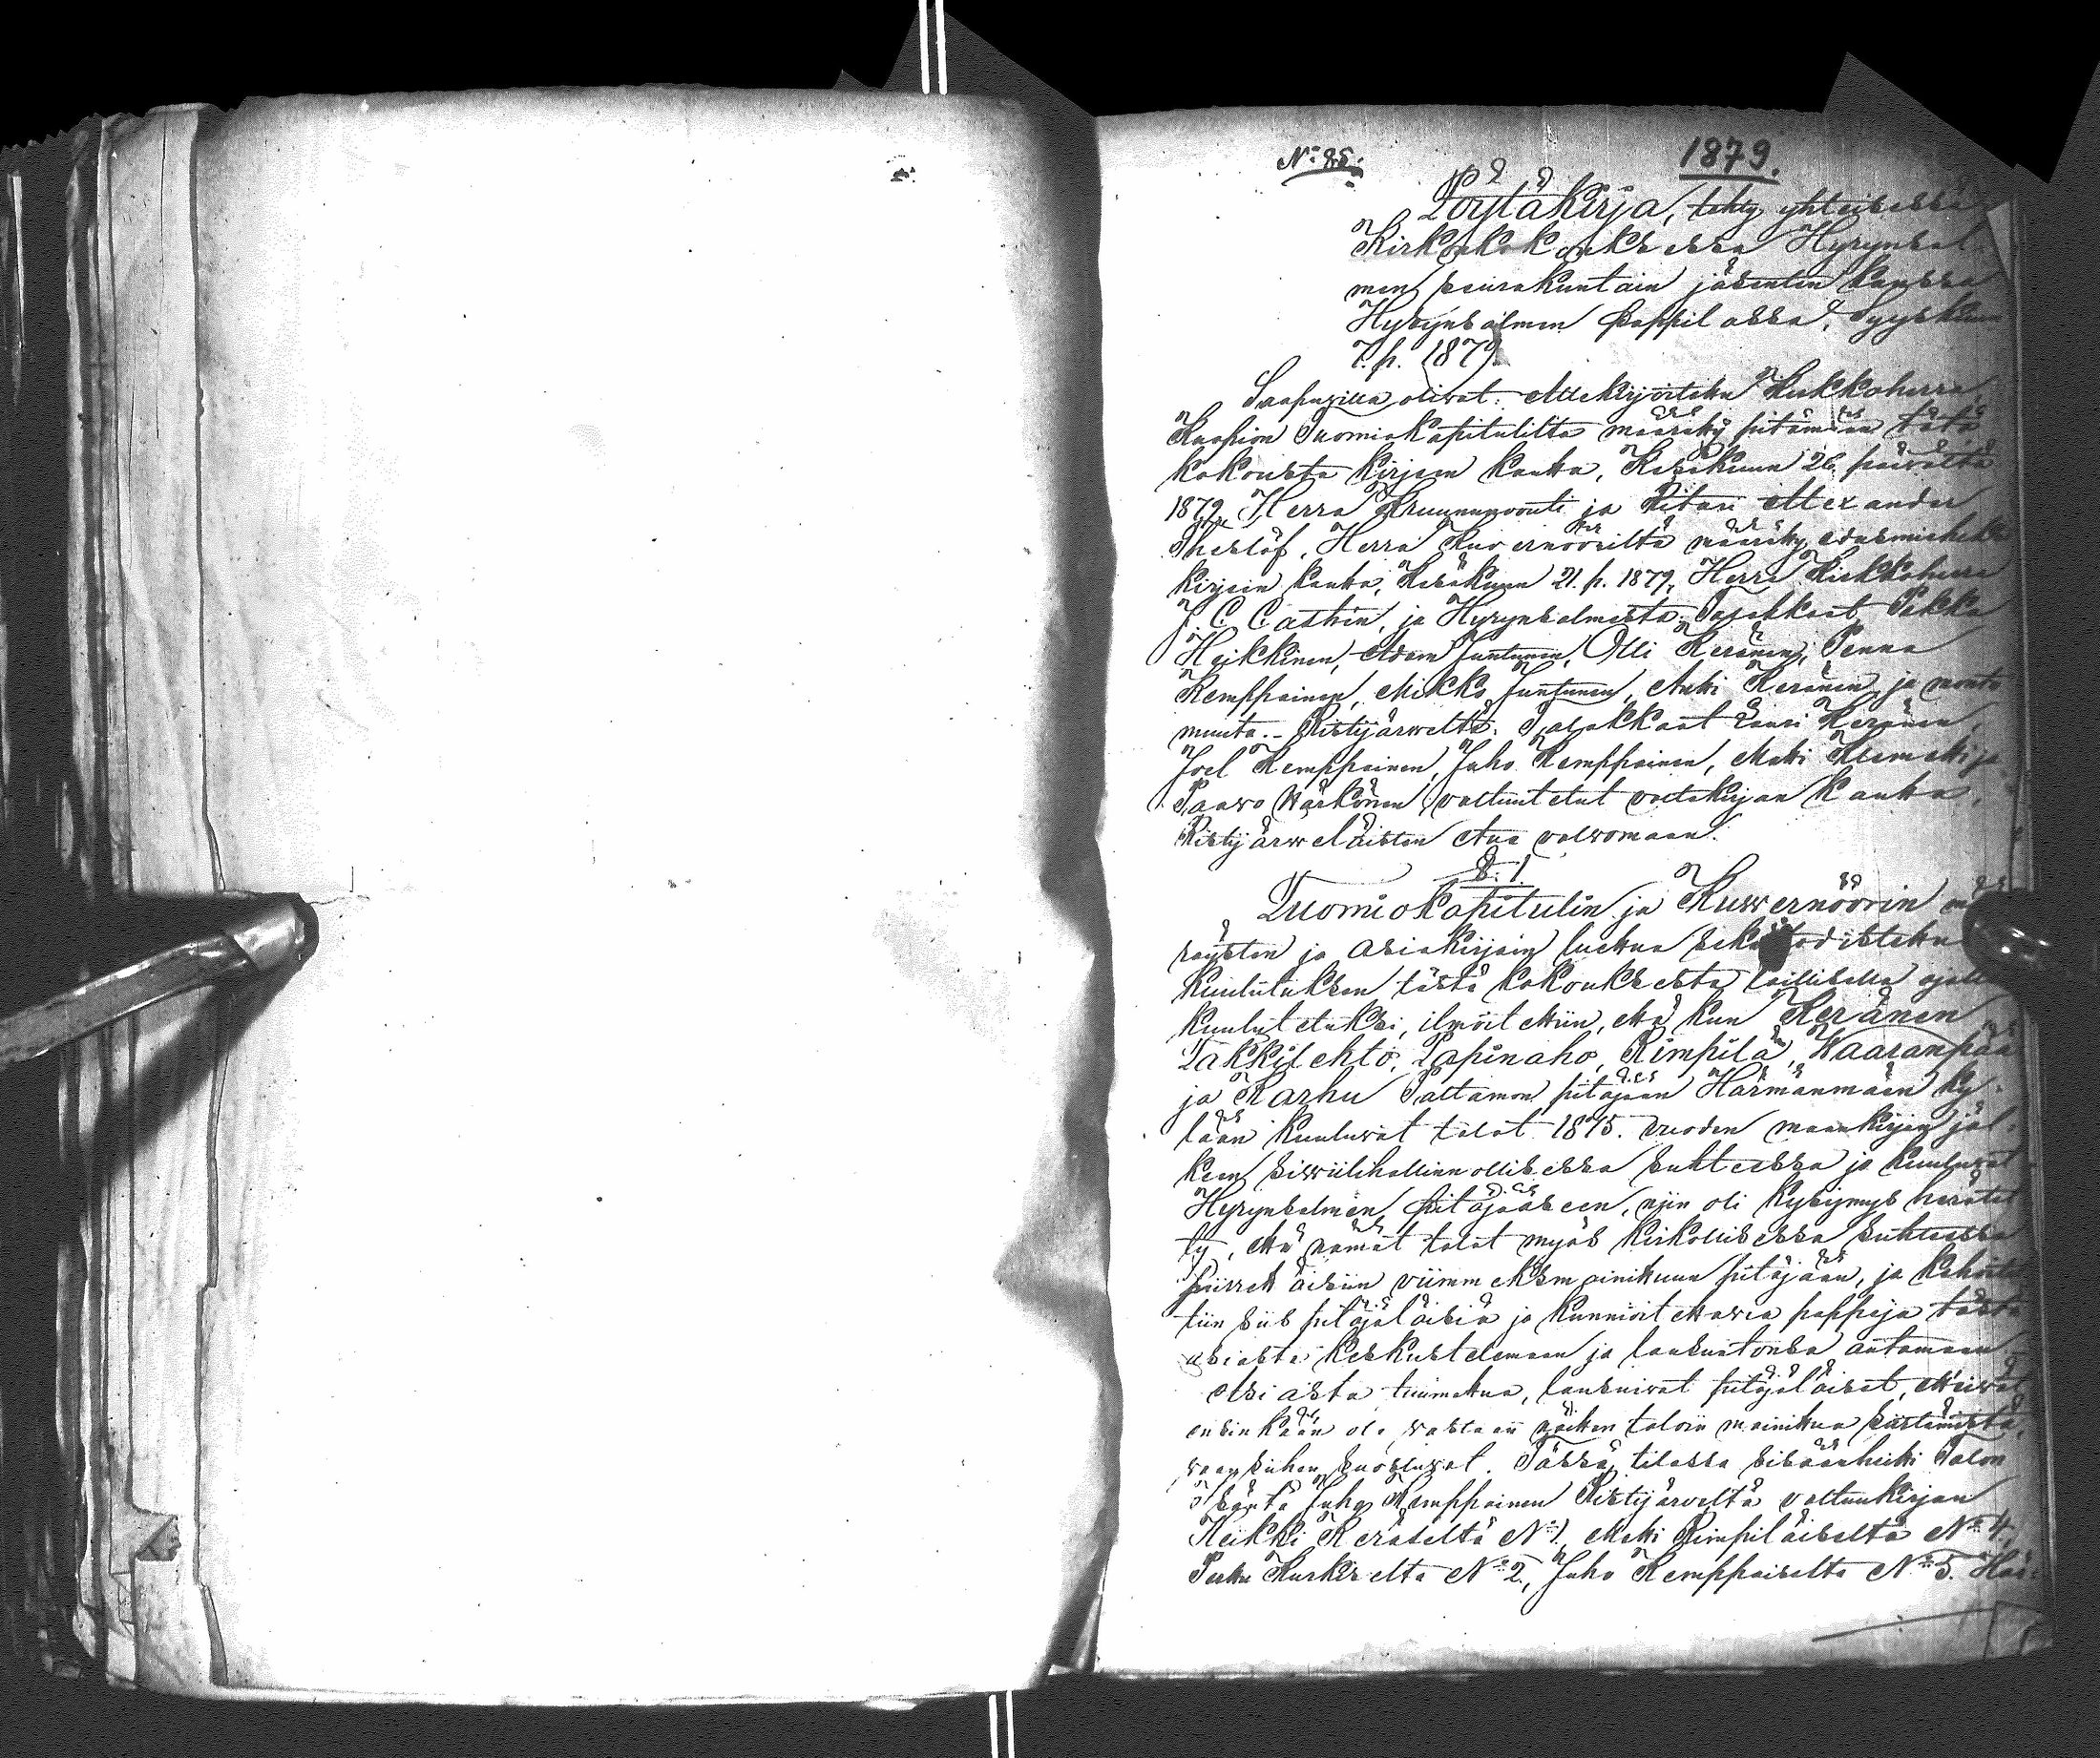 No 85.
1879.
Pöytäkirja, tehty yhteisessä
Kirkonkokouksessa Hyrynsal
men seurakuntain jäsenten kanssa
Hyrynsalmen Pappilassa, Syyskuun
7. p. 1879.
Saapuvilla olivat: Allekirjoitettu Kirkkoherra,
Kuopion Tuomiokapitulilta määrätty pitämään tätä
kokousta kirjeen kautta, Kesäkuun 26 päivältä
1879, Herra Kruununvouti ja Ritari Alexander
Theslöf, Herra Kuvernöörilta määrätty edusmieheksi
kirjein kautta, Kesäkuun 21. p. 1879, Herra Kirkkoherra
J. C. Castrén, ja Hyrynsalmesta: Talokkaat Pekka
Heikkinen, Adam Juntunen, Olli Keränen, Penna
Kemppainen, Mikko Juntunen, Antti Keränen ja monta
muuta. - Ristijärveltä: Talokkaat Lauri Keränen,
Joel Kemppainen, Juho Kemppainen, Matti Klemetti ja
Paavo Härkönen valtuutetut valtakirjan kautta,
Ristijärveläisten etua valvomaan.
§. 1.
Tuomiokapitulin ja Kuvernöörin mää
räysten ja asiakirjain luettua sekä todistettu
kuulutuksen tästä kokouksesta laillisella ajalla
kuulutetuksi, ilmoitettiin, että kun Keränen
Takkilehto, Lapinaho, Rimpilä, Waaranpää
ja Karhu Paltamon pitäjään Härmänmäen ky-
lään kuuluvat talot 1875. vuoden maankirjan jäl-
keen siviilihallinnollisessa suhteessa jo kuuluvat
Hyrynsalmen pitäjääseen, niin oli kysymys herätet
ty, että nämät talot myös kirkollisessa suhteessa
siirrettäisiin viimmeksmainittuun pitäjään, ja kehoitet
tiin siis pitäjäläisiä ja kunnioitettavia pappeja tästä
asiasta keskustelemaan ja lausuntonsa antamaan.
Asiasta tuumattua, lausuivat pitäjäläiset, etteivät
ensinkään ole vastaan näitten taloin mainittua siirtämistä,
vaan siihen suostuvat. Tässä tilassa sisäänhetti Talon
Isäntä Juho Kemppainen Ristijärveltä valtuukirjan
Heikki Keräseltä No 1, Matti Rimpiläiseltä No 4,
Pertu Kurkiselta No 2, Juho Kemppaiselta No 5. Här-